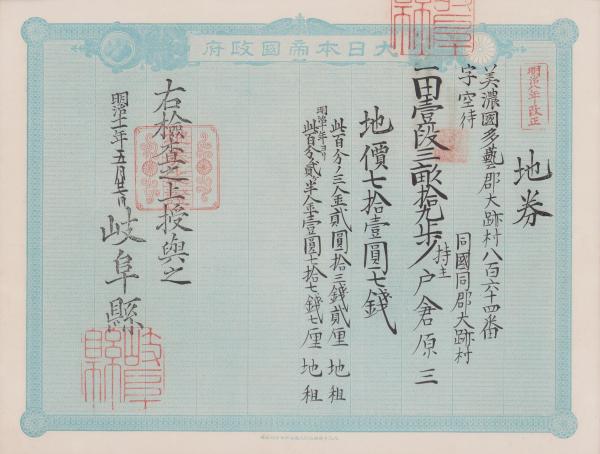 大日本帝國政府
明治八年改正
地券
美濃國多藝郡大跡村八百六十四番
字空待
同國同郡大跡村
一田壹段三畝拾九歩 持主 戸倉原三
地價七拾壹圓七錢
此百分ノ三金貳圓拾三錢貳厘 地租
明治十年ヨリ
此百分ノ貳ヶ半金壹圓七拾七錢七厘 地租
右検査之上授與之
明治十一年五月廿七日
岐阜縣